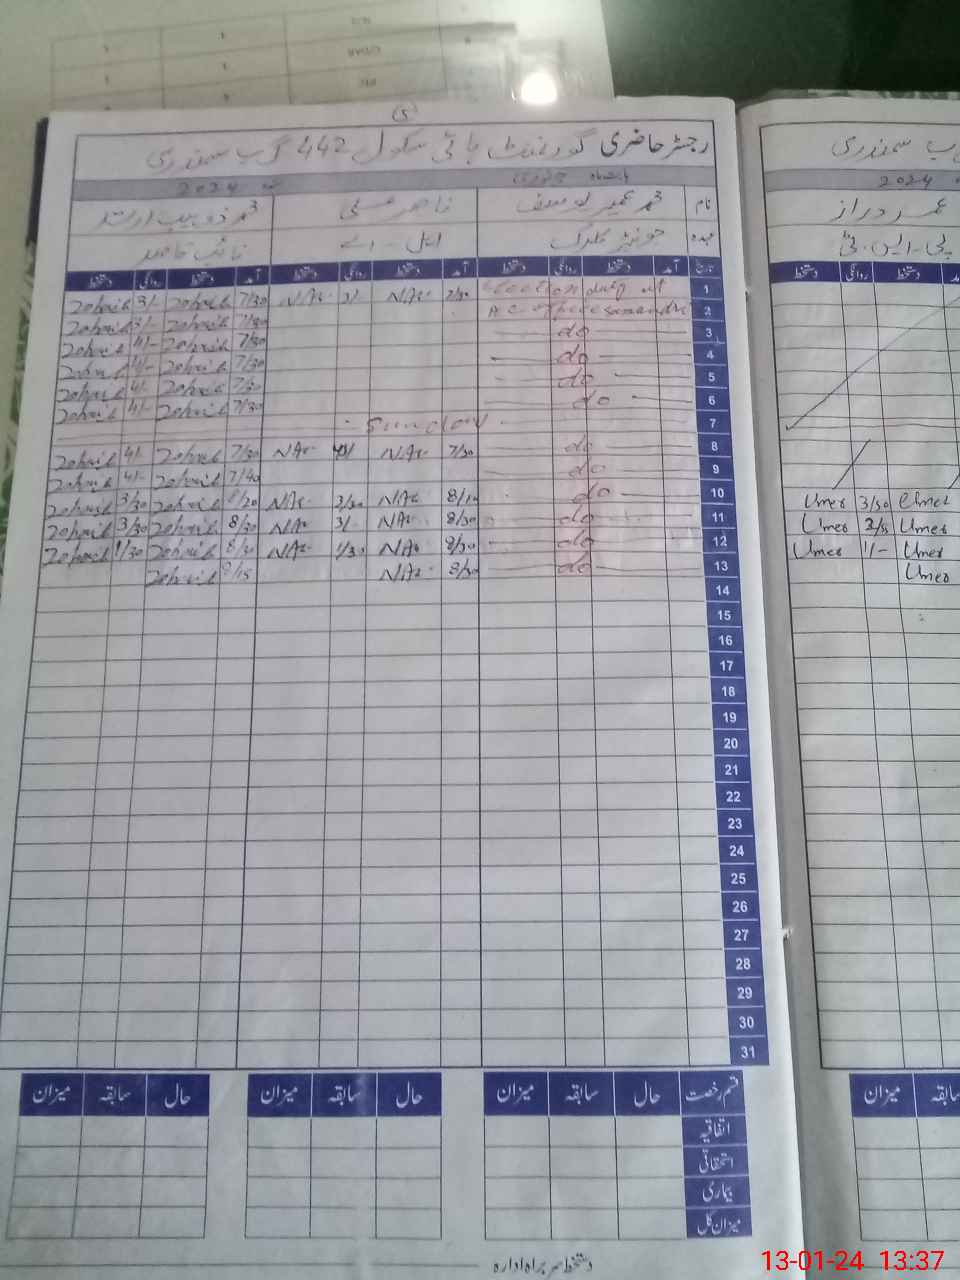 5
رجسٹر حاضری گورنمنٹ ہائی سکول 442 گ ب سمندری
بابت ماہ جنوری 2024 ء
نام محمد عمیر یوسف ناصر علی محمد ذوہیب ارشد
عہدہ جونیئر کلرک ایل - اے نائب قاصد
تاریخ آمد دستخط روانگی دستخط آمد دستخط روانگی دستخط آمد دستخط روانگی دستخط
1 Election duty at 7/30 NAs 3/- NAs 7/30 Zohaib 3/- Zohaib
2 A.C office Samundri 7/30 Zohaib 3/- Zohaib
3 do 7/30 Zohaib 4/- Zohaib
4 do 7/30 Zohaib 4/- Zohaib
5 do 7/30 Zohaib 4/- Zohaib
6 do 7/30 Zohaib 4/- Zohaib
7 Sunday
8 do 7/30 NAs NAs 7/30 Zohaib 4/- Zohaib
9 do 7/40 Zohaib 4/- Zohaib
10 do 8/10 NAs 3/30 NAs 8/20 Zohaib 3/30 Zohaib
11 do 8/30 NAs 3/- NAs 8/30 Zohaib 3/30 Zohaib
12 do 8/30 NAs 1/30 NAs 8/30 Zohaib 1/30 Zohaib
13 do 8/30 NAs 8/15 Zohaib
14
15
16
17
18
19
20
21
22
23
24
25
26
27
28
29
30
31
قسم رخصت حال سابقہ میزان حال سابقہ میزان حال سابقہ میزان
اتفاقیہ
استحقاقی
بیماری
میزان کل
دستخط سربراہ ادارہ
ب سمندری
2024
عمر دراز
پی-ایس-ٹی
دستخط روانگی دستخط
Umer 3/30 Umer
Umer Umer
Umer 1/- Umer
Umer
سابقہ میزان
13-01-24 13:37